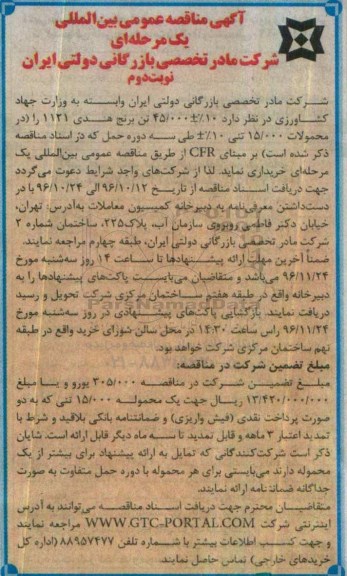 آگهی مناقصه عمومی بین‌المللی
یک مرحله‌ای
شرکت مادر تخصصی بازرگانی دولتی ایران
نوبت دوم
شرکت مادر تخصصی بازرگانی دولتی ایران وابسته به وزارت جهاد
کشاورزی در نظر دارد ۱۰٪± ۴۵/۰۰۰ تن برنج هندی ۱۱۲۱ را (در
محمولات ۱۵/۰۰۰ تنی ۱۰٪± طی سه دوره حمل که در اسناد مناقصه
ذکر شده است) بر مبنای CFR از طریق مناقصه عمومی بین‌المللی یک
مرحله‌ای خریداری نماید. لذا از شرکت‌های واجد شرایط دعوت می‌گردد
جهت دریافت اسناد مناقصه از تاریخ ۹۶/۱۰/۱۲ الی ۹۶/۱۰/۲۴ با در
دست‌داشتن معرفی‌نامه به دبیرخانه کمیسیون معاملات به‌آدرس: تهران،
خیابان دکتر فاطمی روبروی سازمان آب، پلاک۲۲۵، ساختمان شماره ۲
شرکت مادر تخصصی بازرگانی دولتی ایران، طبقه چهارم مراجعه نمایند.
ضمناً آخرین مهلت ارائه پیشنهادها تا ساعت ۱۴ روز سه‌شنبه مورخ
۹۶/۱۱/۲۴ می‌باشد و متقاضیان می‌بایست پاکت‌های پیشنهادها را به
دبیرخانه واقع در طبقه هفتم ساختمان مرکزی شرکت تحویل و رسید
دریافت نمایند. بازگشایی پاکت‌های پیشنهادی در روز سه‌شنبه مورخ
۹۶/۱۱/۲۴ راس ساعت ۱۴:۳۰ در محل سالن شورای خرید واقع در طبقه
نهم ساختمان مرکزی شرکت خواهد بود.
مبلغ تضمین شرکت در مناقصه:
مبلغ تضمین شرکت در مناقصه ۳۰۵/۰۰۰ یورو و یا مبلغ
۱۳/۴۳۰/۰۰۰/۰۰۰ ریال جهت یک محموله ۱۵/۰۰۰ تنی که به دو
صورت پرداخت نقدی (فیش واریزی) و ضمانتنامه بانکی بلاقید و شرط با
تمدید اعتبار ۳ ماهه و قابل تمدید تا سه ماه دیگر قابل ارائه است. شایان
ذکر است شرکت‌کنندگانی که تمایل به ارائه پیشنهاد برای بیشتر از یک
محموله دارند می‌بایستی برای هر محموله با دوره حمل متفاوت به صورت
جداگانه ضمانتنامه ارائه نمایند.
متقاضیان محترم جهت دریافت اسناد مناقصه می‌توانند به آدرس
اینترنتی شرکت WWW.GTC-PORTAL.COM مراجعه نمایند
و جهت کسب اطلاعات بیشتر با شماره تلفن ۸۸۹۵۷۴۷۷ (اداره کل
خریدهای خارجی) تماس حاصل نمایند.